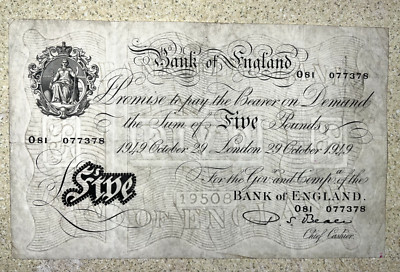 Bank of England
O81 077378
I Promise to pay the Bearer on Demand
the Sum of Five Pounds
O81 077378
1949 October 29 London 29 October 1949
For the Govr and Compa of the
BANK OF ENGLAND.
Five
19508
O81 077378
Chief Cashier.